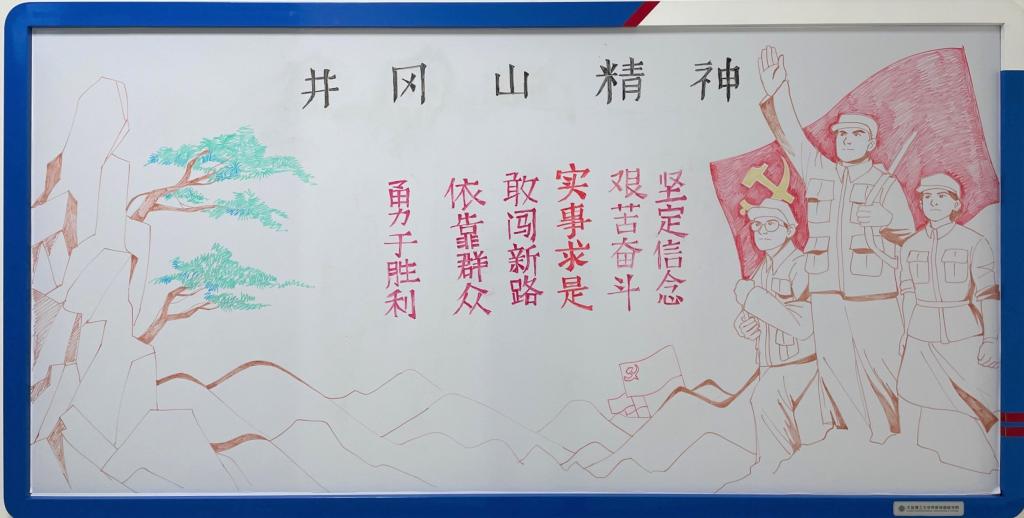 井冈山精神
坚定信念
艰苦奋斗
实事求是
敢闯新路
依靠群众
勇于胜利